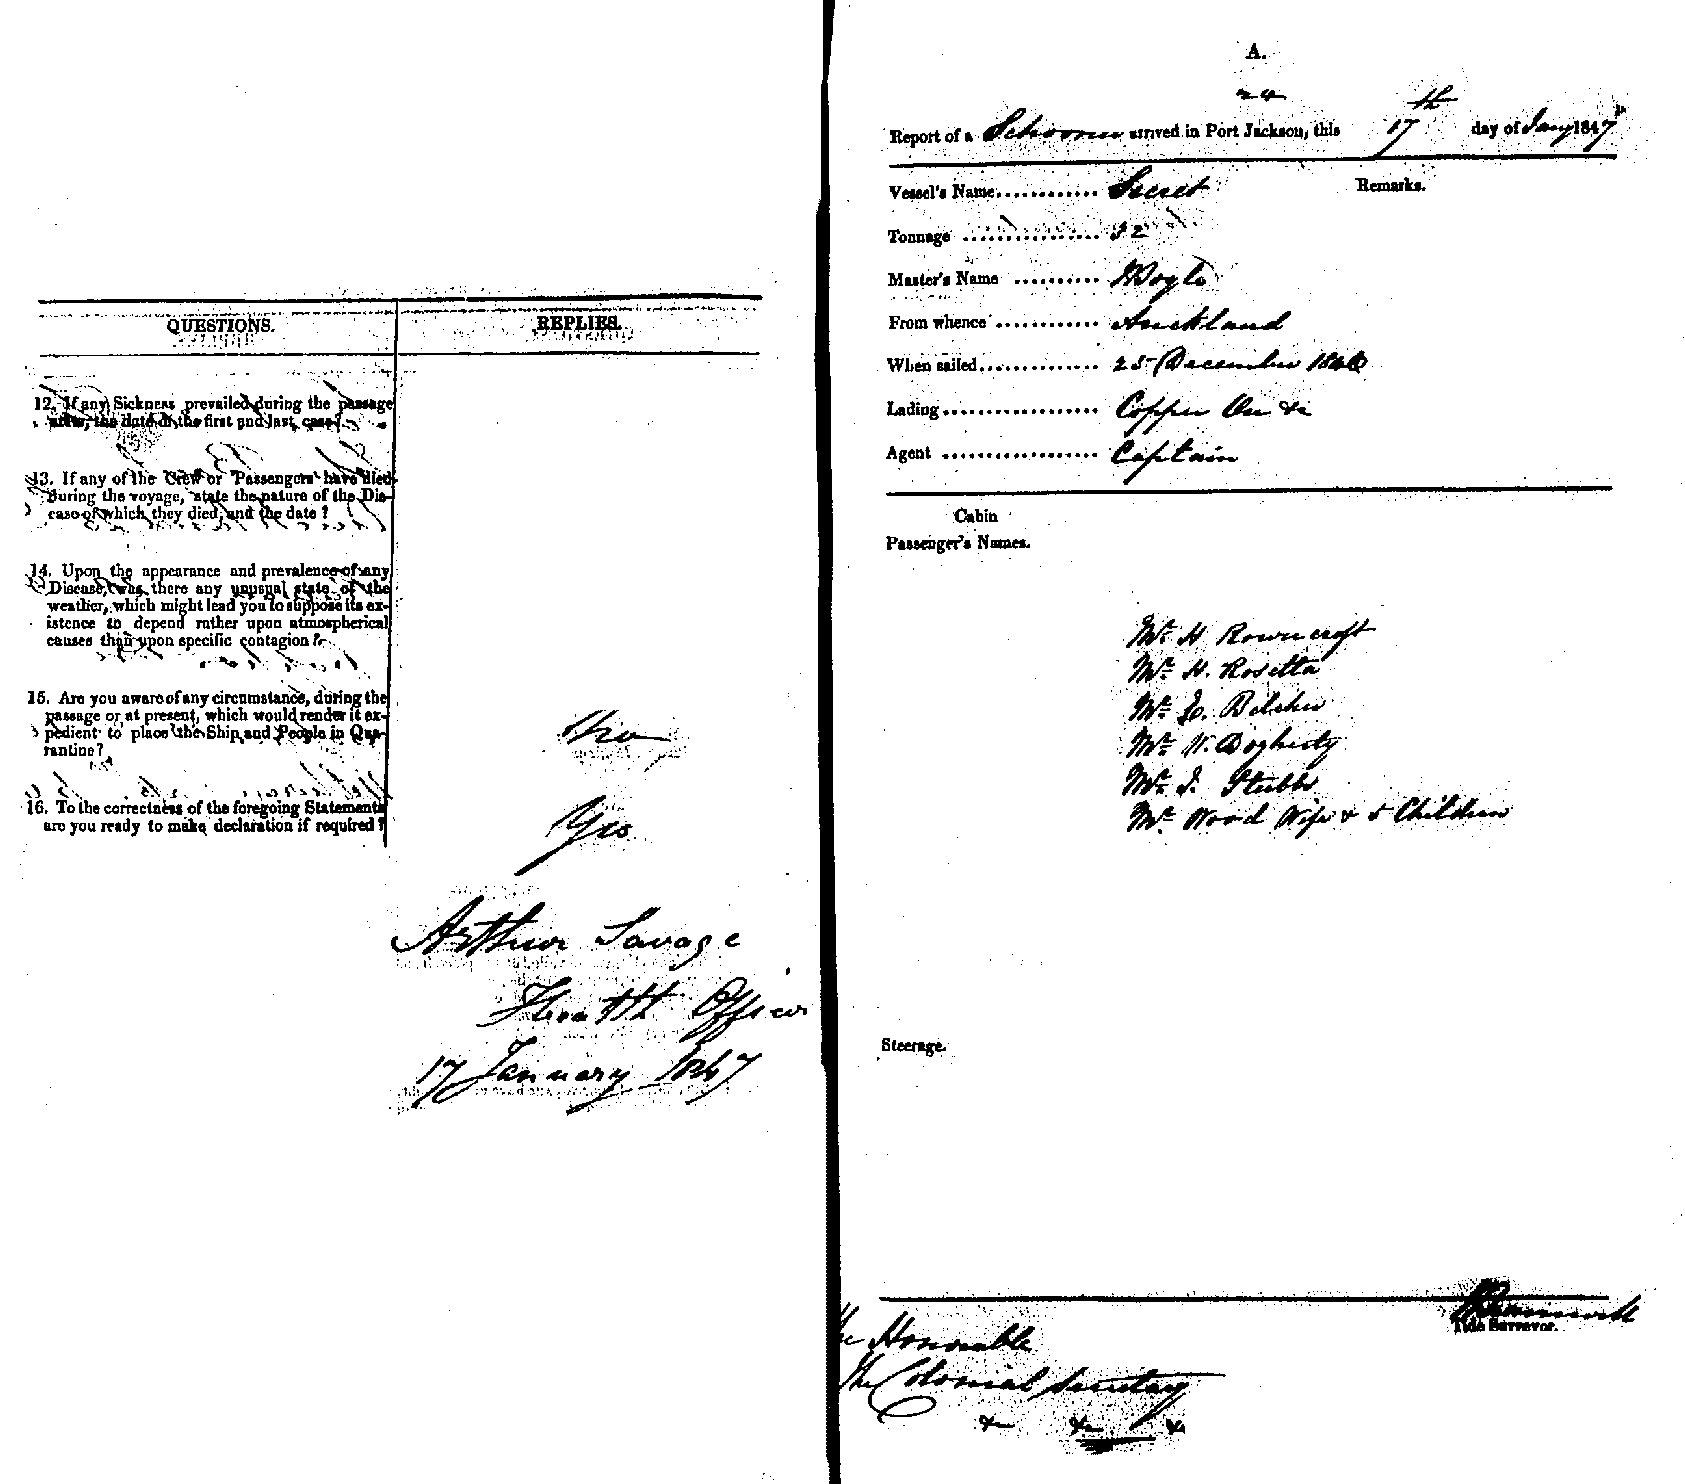 QUESTIONS. REPLIES.
12. If any Sickness prevailed during the passage
arise, the date of the first and last case?
13. If any of the Crew or Passengers have died
during the voyage, state the nature of the Dis-
ease of which they died, and the date?
14. Upon the appearance and prevalence of any
Disease, was there any unusual state of the
weather, which might lead you to suppose its ex-
istence to depend rather upon atmospherical
causes than upon specific contagion?
15. Are you aware of any circumstance, during the
passage or at present, which would render it ex-
pedient to place the Ship and People in Qua-
rantine?
No
16. To the correctness of the foregoing Statements
are you ready to make declaration if required?
Yes
Arthur Savage
Health Officer
17 January 1847
A.
24
Report of a Schooner arrived in Port Jackson, this 17th day of Jany 1847
Vessel's Name............ Secret
Remarks.
Tonnage ................ 32
Master's Name ..........
From whence ............ Auckland
When sailed.............. 25 December 1846
Lading.................. Copper Ore &c
Agent .................. Captain
Cabin
Passenger's Names.
Mr. H Rowncroft
Mr. H. Rosetta
Mr. Belcher
Mr. W. Dogherty
Mr. J. Stubbs
Mr. Wood Wife & 5 Children
Steerage.
Tide Surveyor.
The Honorable
The Colonial Secretary
&c &c &c